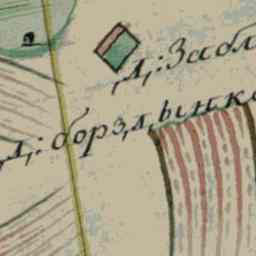 ,д,: Забл
,д,: борздынка